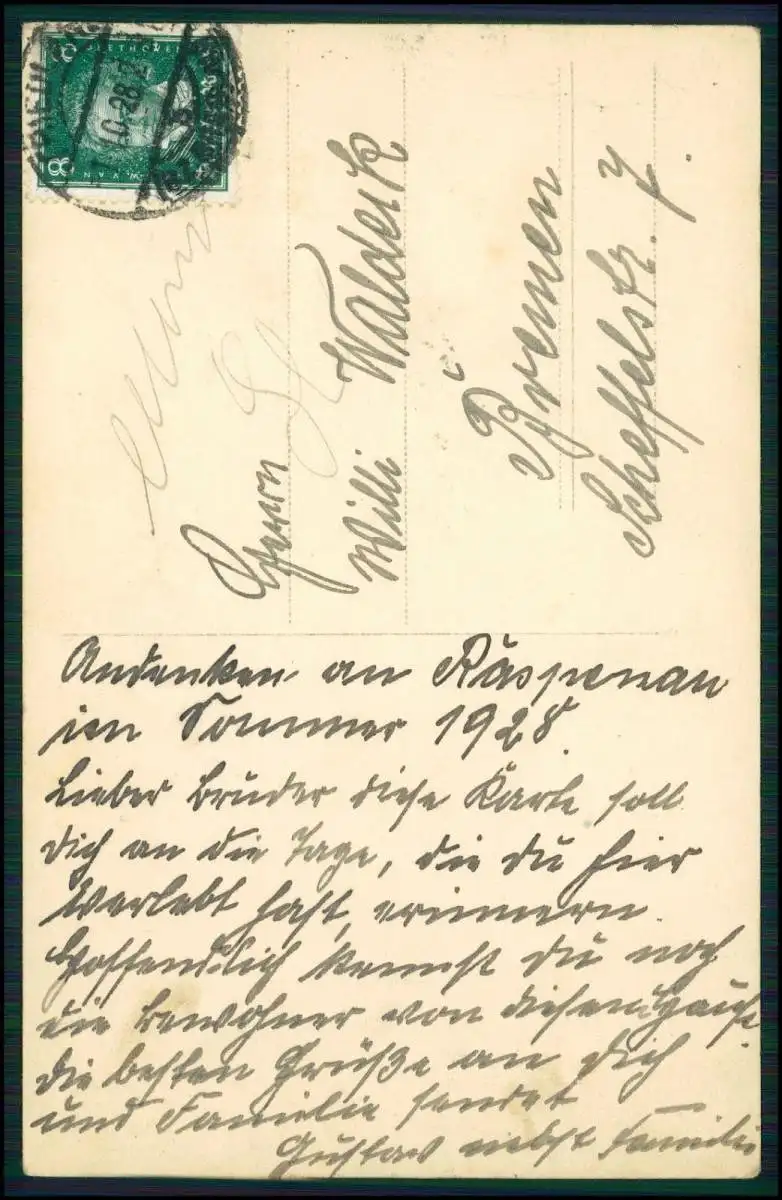 Andenken an Räspenau
im Sommer 1928.
Lieber Bruder diese Karte soll
dich an die Tage, die du hier
verlebt hast, erinnern.
Hoffendlich kennst du noch
die bewohner von diesen Hause.
die besten Grüße an dich
und Familie sendet
Gustav nebst Familie
Herrn
Willi Walderk
Bremen
Scheffelstr. 7.
BEETHOVEN
8 8
10.28